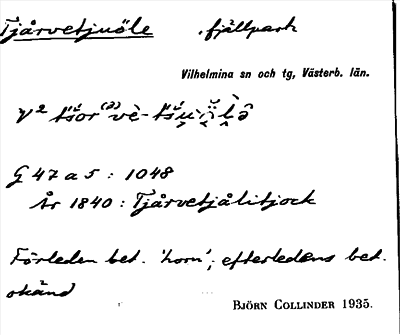 Tjårvetjuöle . fjällpark
Vilhelmina sn och tg, Västerb. län.
G 47 a 5 : 1048
År 1840 : Tjårvetjålitjock
Förleden bet. 'horn'; efterledens bet.
okänd
BJÖRN COLLINDER 1935.